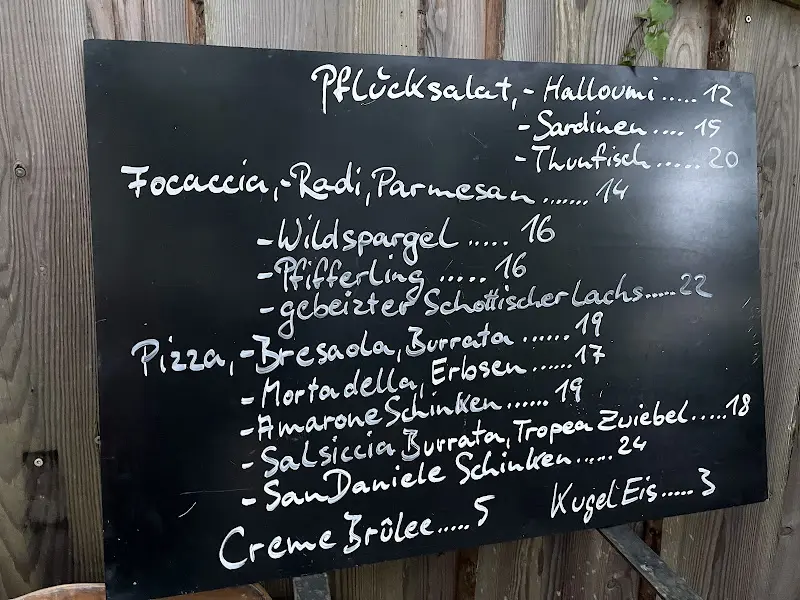 Pflücksalat,-Halloumi.....12
-Sardinen....15
-Thunfisch.....20
Focaccia,-Radi,Parmesan.......14
-Wildspargel.....16
-Pfifferling.....16
-gebeizter Schottischer Lachs.....22
Pizza,-Bresaola,Burrata......19
-Mortadella,Erbsen......17
-Amarone Schinken......19
-Salsiccia Burrata,Tropea Zwiebel.....18
-San Daniele Schinken.....24
Creme Brûlee.....5 Kugel Eis.....3